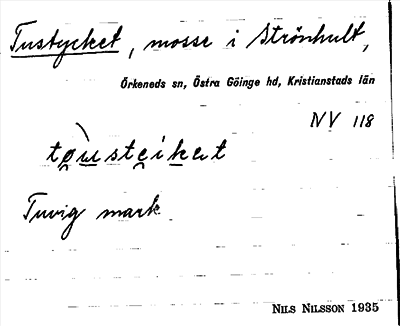 Tustycket, mosse i Strönhult,
Örkeneds sn, Östra Göinge hd, Kristianstads län
NV 118
Tuvig mark
NILS NILSSON 1935